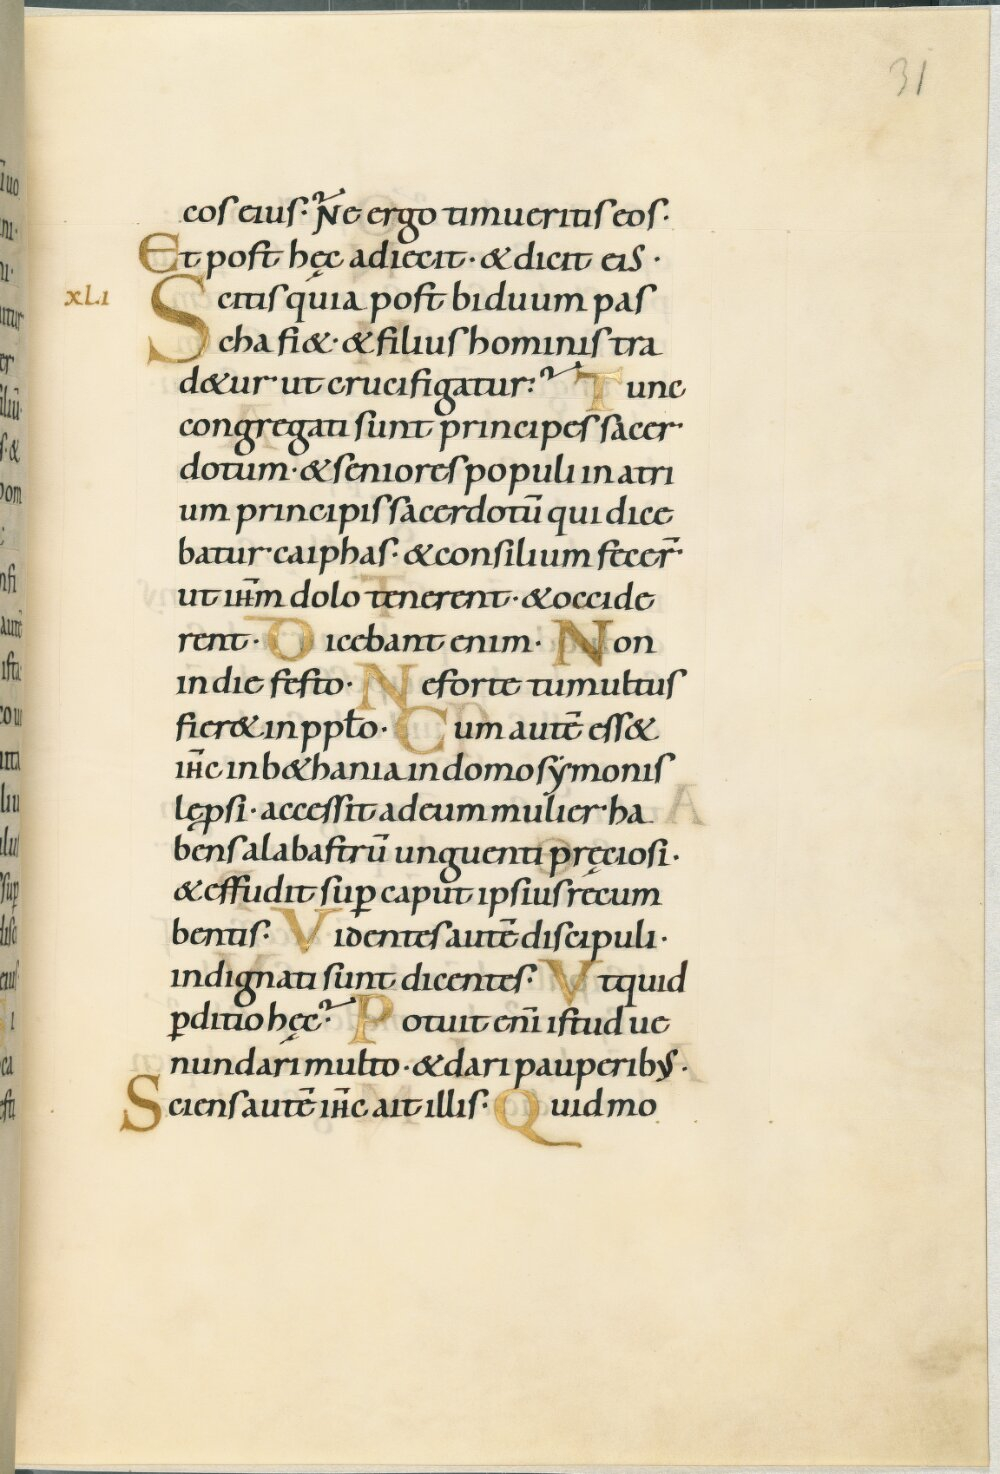 31
cos eius· Ne ergo timueritis eos·
Et post hęc adiecit· & dicit eis·
xLI
Scitis quia post biduum pas
cha fi&· & filius hominis tra
d&ur· ut crucifigatur: Tunc
congregati sunt principes sacer
dotum· & seniores populi in atri
um principis sacerdotū qui dice
batur· caiphas· & consilium fecer̄·
ut ih̄m dolo tenerent· & occide
rent· Dicebant enim· Non
in die festo· Ne forte tumultus
fier& in pplo· Cum autē ess&
ih̄c in b&hania in domo sẏmonis
lępsi· accessit ad eum mulier· ha
bens alabastrū unguenti pręciosi·
& effudit sup̄ caput ipsius recum
bentis· Videntes autē discipuli·
indignati sunt dicentes· Vt quid
ꝑditio hęc· Potuit eni̅ istud ue
nundari multo· & dari pauperib;·
Sciens autē ih̄c ait illis· Quid mo